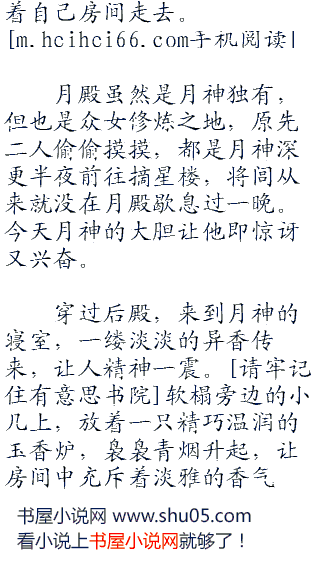 着自己房间走去。
[m.hcihci66.com手机阅读|
月殿虽然是月神独有，
但也是众女修炼之地，原先
二人偷偷摸摸，都是月神深
更半夜前往摘星楼，将闾从
来就没在月殿歇息过一晚。
今天月神的大胆让他即惊讶
又兴奋。
穿过后殿，来到月神的
寝室，一缕淡淡的异香传
来，让人精神一震。[请牢记
住有意思书院]软榻旁边的小
几上，放着一只精巧温润的
玉香炉，袅袅青烟升起，让
房间中充斥着淡雅的香气
书屋小说网 www.shu05.com
看小说上书屋小说网就够了！